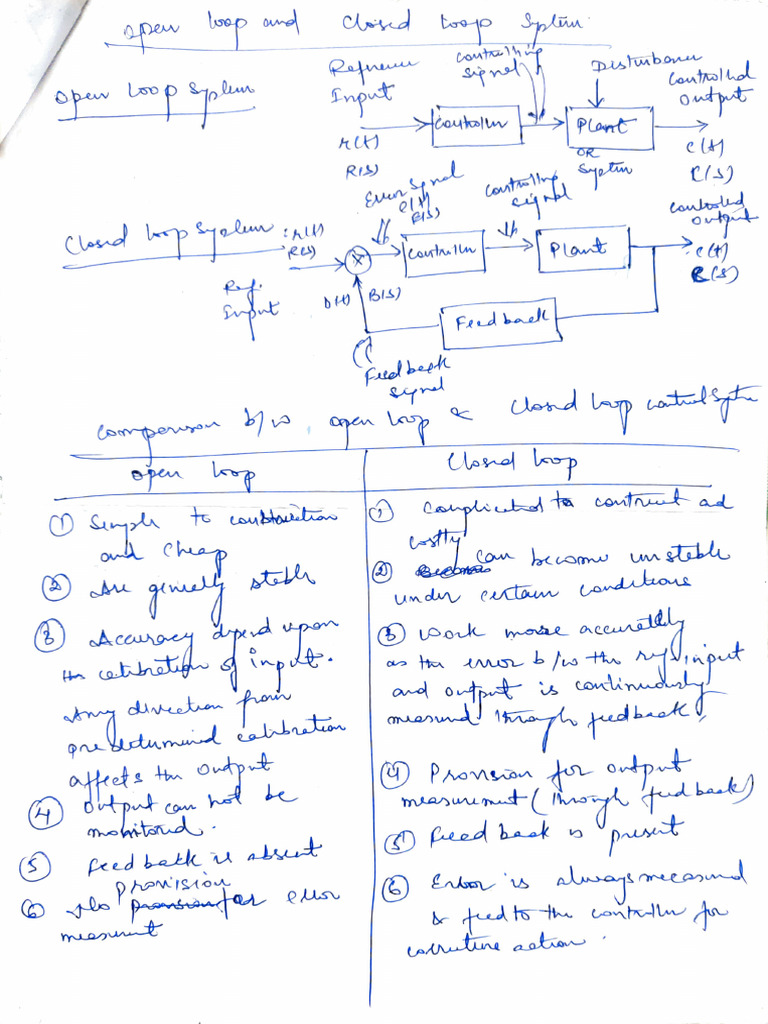 open loop and closed loop System.
Open Loop System
Reference Input
controlling signal
Disturbance
Controlled Output
Controller
Plant
OR System
r(t)
R(s)
C(t)
C(s)
Closed loop System
Error Signal
e(t)
E(s)
controlling signal
controlled output
:r(t)
R(s)
Controller
Plant
C(t)
C(s)
Ref.
Input
b(t) B(s)
Feedback
Feedback
signal
comparison b/w open loop & closed loop control System
open loop
closed loop
① Simple to construction
and cheap
② Are generally stable
③ Accuracy depend upon
the calibration of input.
Any direction from
predetermined calibration
affects the output
④ Output can not be
monitored.
⑤ feedback is absent
⑥ No Provision for error
measurement
① Complicated to contruct ad
costly
② can become unstable
under certain conditions
③ Work more accurately
as the error b/w the ref. input
and output is continuously
measured through feedback.
④ Provision for output
measurement (through feedback)
⑤ Feedback is present
⑥ Error is always measured
& feed to the controller for
corrective action.